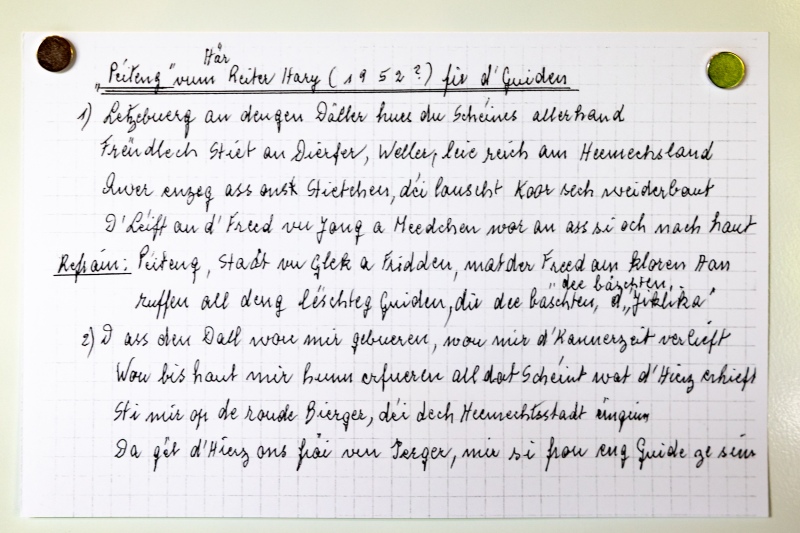 Här
„Péiteng" vum Reiter Hary (1952?) fir d'Guiden
1) Letzebuerg an dengen Däller hues du Schéines allerhand
Frëndlech Stiet an Dierfer, Weller, leie reich am Heemechsland
Awer enzeg ass onst Stietchen, déi lauscht Koor sech weiderbaut
D'Léift an d'Freed vu Jong a Meedchen wor an ass si och nach haut
Refrain: Péiteng, Stadt vu Glek a Fridden, mat der Freed am kloren Aan
"dee bäschten,
ruffen all deng lëschteg Guiden, dir dee bäschten, d'„Jiklika"
2) D ass den Dall wou mir gebueren, wou mir d'Kannerzeit verlieft
Wou bis haut mir hunn erfueren all dat Schéint wat d'Hierz erhieft
Sti mir op de roude Bierger, déi dech Heemechtsstadt
Da gët d'Hierz ons fräi vun Ierger, mir si frou eng Guide ze sin